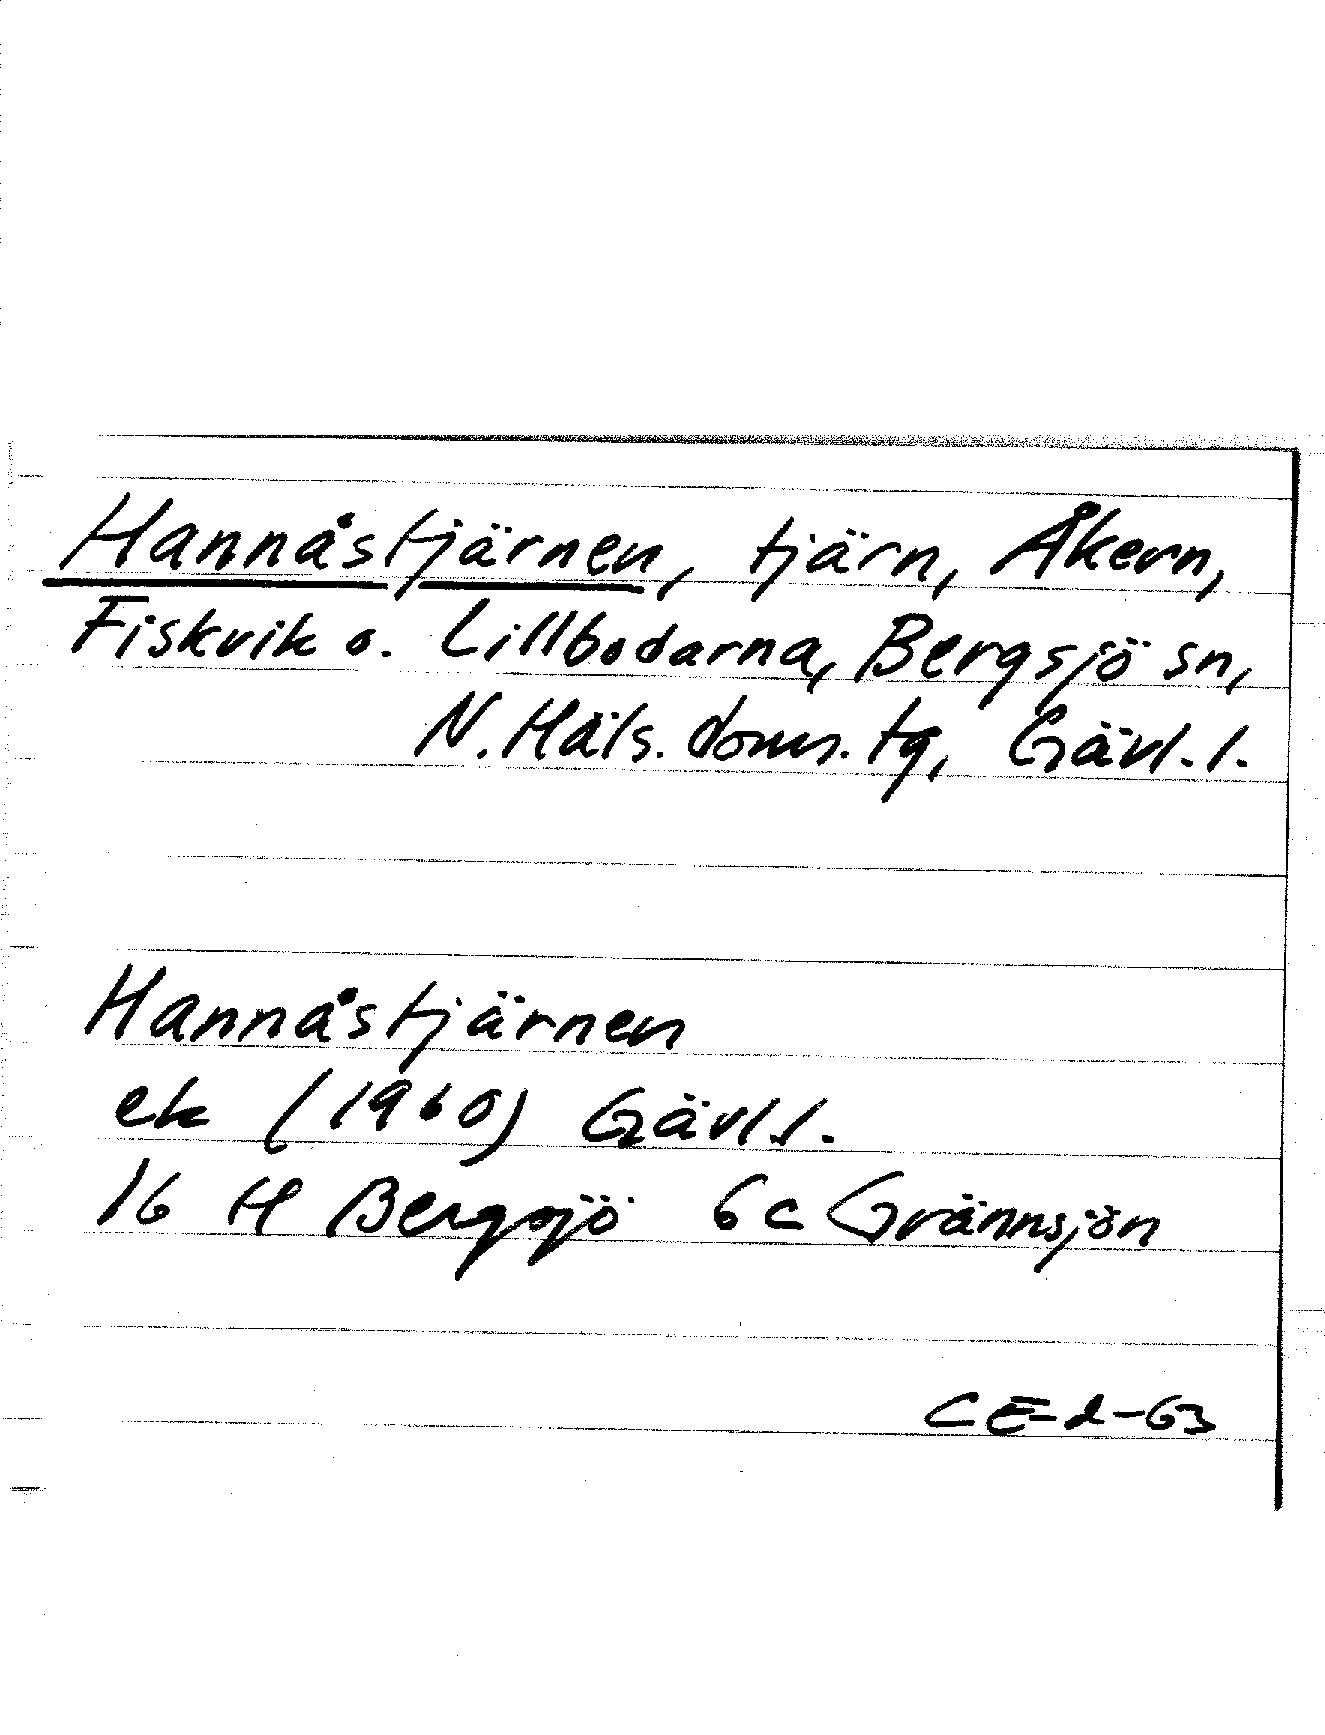 Hannåstjärnen, tjärn, Åkern,
Fiskvik o. Lillbodarna, Bergsjö sn,
N. Häls. doms. tg, Gävl. l.
Hannåstjärnen
ek (1960) Gävl. l.
16 H Bergsjö 6c Grännsjön
CE-d-63